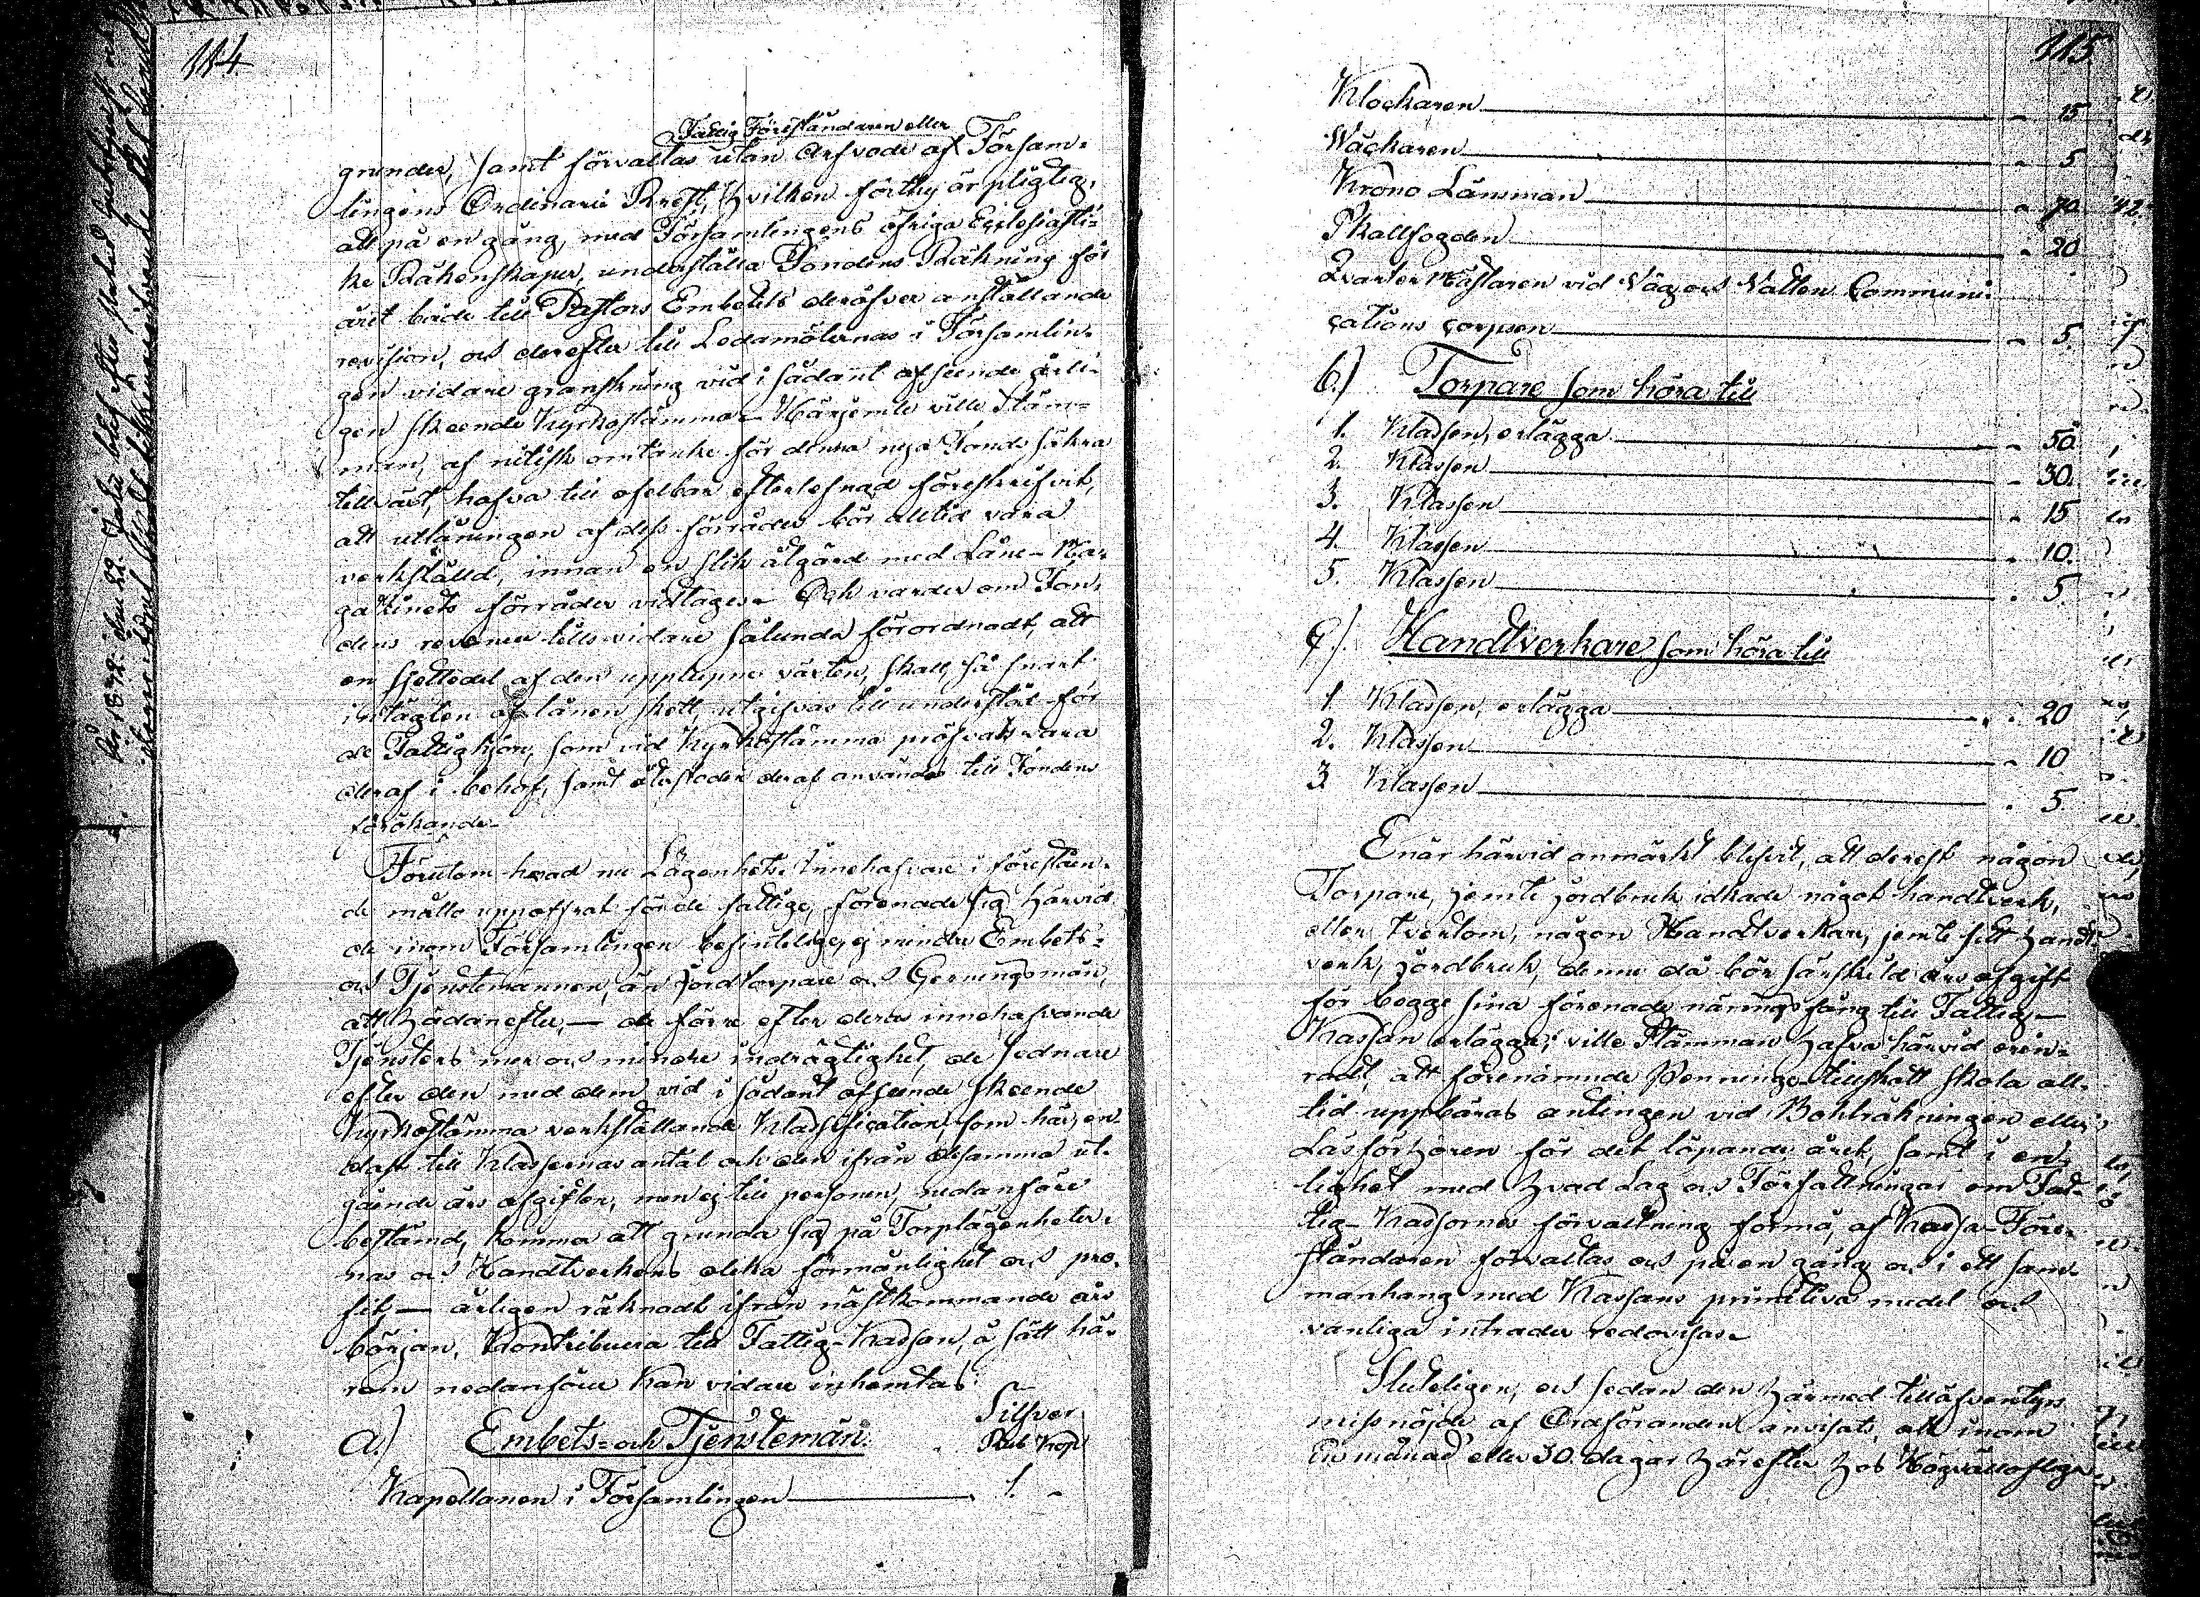 114
Fattig Föreståndaren eller
grunder, samt förvaltas utan Arfvode af Försam-
lingens Ordinarie Prest, hvilken förthy är pligtig,
att på en gång, med Församlingens öfriga Ecclesiasti-
ke Räkenskaper, underställa Fondens Räkning för
året både till Pastors Embetets deröfver anställande
revision, och derefter till Ledamöternas i Församlin-
gen vidare granskning vid i sådant afseende årli-
gen skeende Kyrkostämma. Härjemte ville Stäm-
man, af nitisk omtanke för denna nya Fonds säkra
tillväxt, hafva till ofelbar efterlefnad föreskrifvit,
att utlåningen af dess förråder bör alltid vara
verkställd, innan en slik åtgärd med Låne-Ma-
gazinets förråder vidtages. Och varder om Fon-
dens revenue tillsvidare sålunda förordnadt, att
en sjettedel af den upplupne växten, skall, så snart
intägten af lånen skett, utgifvas till understöd för
de Fattighjon, som vid Kyrkostämma pröfvats vara
deraf i behof, samt återstoden deraf användas till Fondens
förökande.
Förutom hvad nu Lägenhets Innehafvare i föreståen-
de måtto uppoffrat för de fattige, förenade sig härvid
de inom Församlingen befintelige, ej mindre Embets-
och Tjenstemannen, än Jordtorpare och Gerningsmän,
att hädanefter, — de förre efter deras innehafvande
Tjensters mer och mindre indrägtighet, de sednare
efter den med dem vid i sådant afseende skeende
Kyrkostämma verkställande Klassification, som här, en-
dast till Klassernas antal och den ifrån desamma ut-
gående års afgiften, men ej till personen, nedanföre
bestämd, komma att grunda sig på Torplägenheter-
nas och Handtverkens olika förmånlighet och pro-
fit — årligen räknadt ifrån nästkommande års
början, Kontribuera till Fattig-Kassan, å sätt hä-
rom nedanföre kan vidare inhemtas:
Silfver
a.) Embets- och Tjenstemän. Rub. Kop.
Kapellanen i Församlingen — 1. -
115.
Klockaren — - 15
Väckaren — - 5
Krono Länsman — - 70
Skallfogden — - 20
Quarter Mästaren vid Väg och Vatten Communi-
cations corpsen — - 5.
b.) Torpare som höra till
1. Klassen, erlägga — - 50.
2. Klassen — - 30.
3. Klassen — - 15
4. Klassen — - 10.
5. Klassen — - 5.
c.) Handtverkare som höra till
1. Klassen, erlägga — - 20
2. Klassen — - 10
3. Klassen — - 5.
Enär härvid anmärkt blifvit, att derest någon
Torpare, jemte jordbruk idkade något handtverk,
eller tvertom, någon Handtverkare, jemte sitt handt-
verk, jordbruk, denne då bör särskild års afgift
för begge sina förenade näringsfång till Fattig-
Kassan erlägga; ville Stämman hafva härvid erin-
radt, att förenämnde Pennings-tillskott skola all-
tid uppbäras antingen vid Bokräkningen eller
Läsförhören för det löpande året, samt i en-
lighet med hvad Lag och Författningar om Fat-
tig-Kassornes förvaltning förmå, af Kassa-Före-
ståndaren förvaltas och på en gång och i ett sam-
manhang med Kassans primitiva medel och
vanliga intrader redovisas.
Sluteligen, och sedan den härmed tilläfventyrs
missnöjde af Ordföranden anvisats, att inom
En månad eller 30 dagar härefter hos Högvällofliga